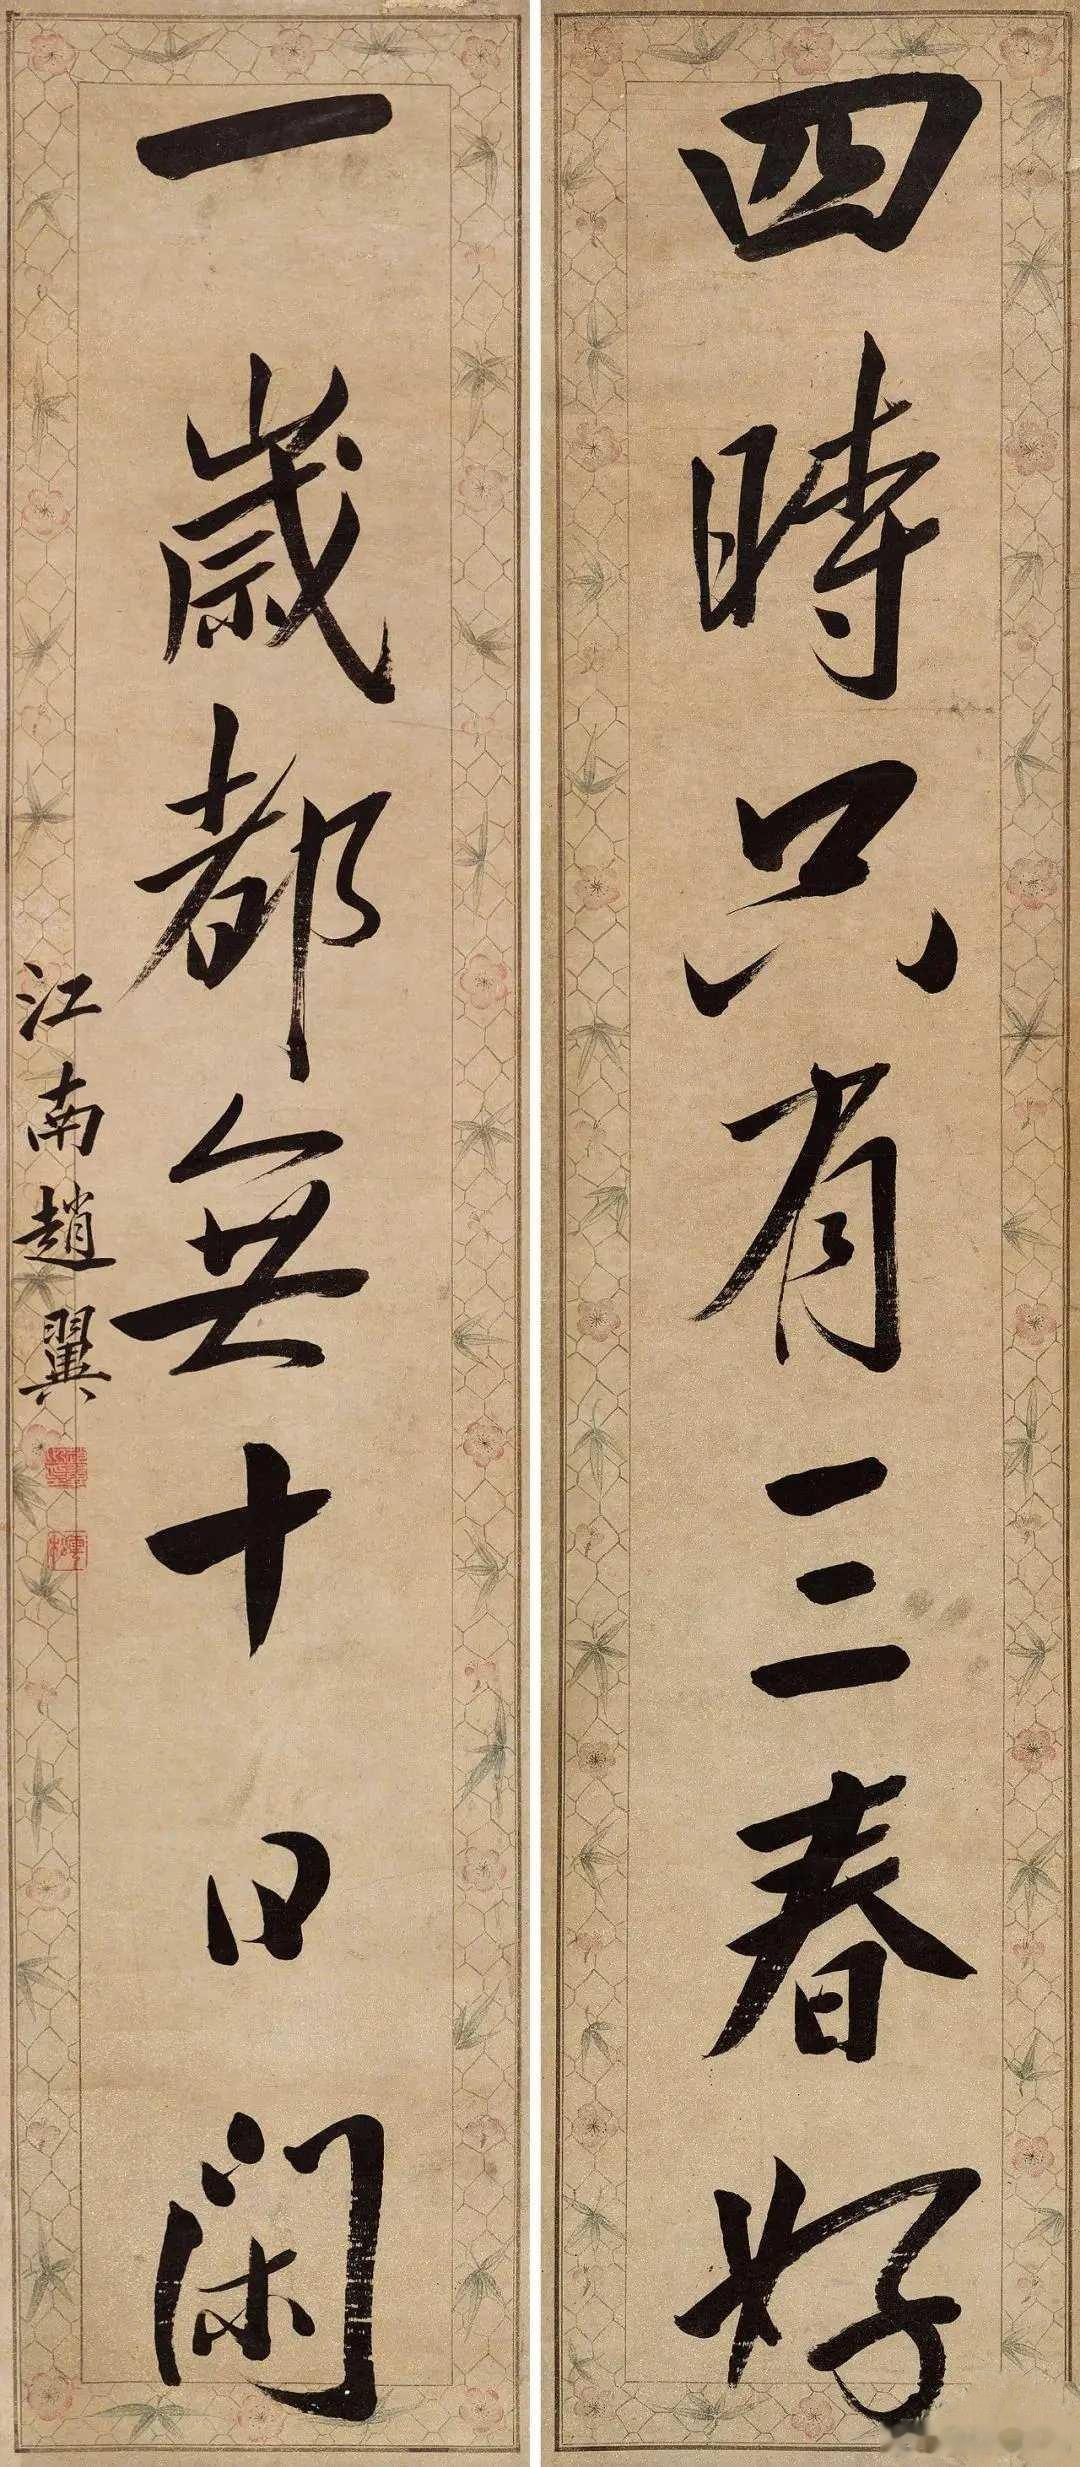 四時只有三春好
一歲都無十日閑
江南趙翼